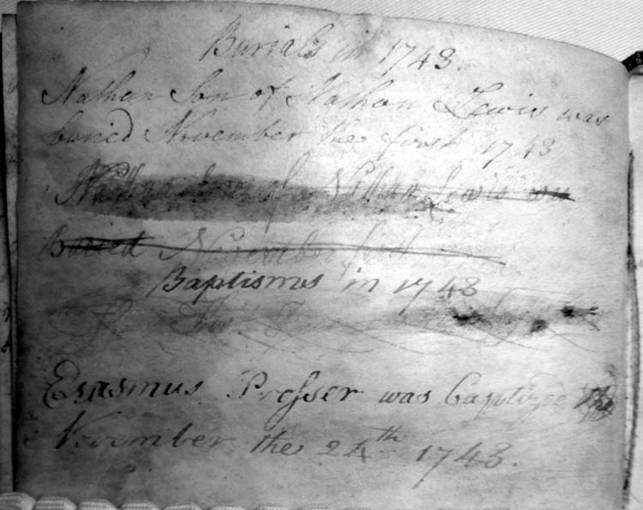 Burials in 1743.
Nathan Son of Nathan Lewis was
buried November the first 1743
Nathan Son of Nathan Lewis was
Buried November first
Baptisms in 1743
Erasmus Prosser was Baptized
November the 24th 1743.